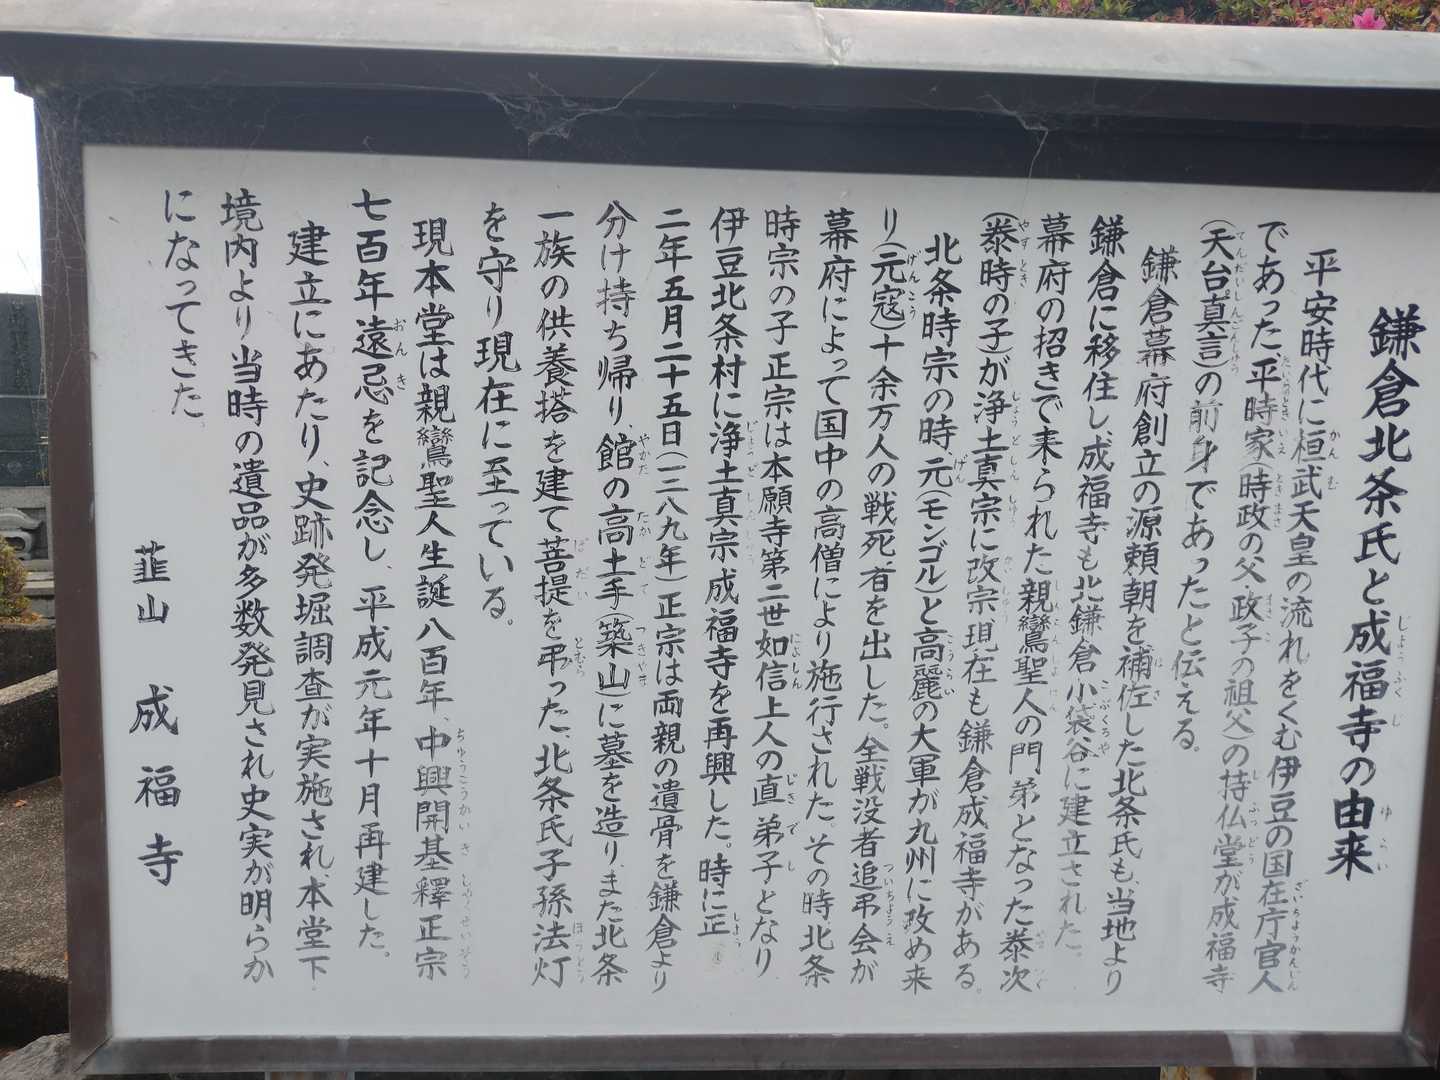 鎌倉北条氏と成福寺の由来
平安時代に桓武天皇の流れをくむ伊豆の国在庁官人
であった平時家(時政の父、政子の祖父)の持仏堂が成福寺
(天台真言)の前身であったと伝える。
鎌倉幕府創立の源頼朝を補佐した北条氏も、当地より
鎌倉に移住し、成福寺も北鎌倉小袋谷に建立された。
幕府の招きで来られた親鸞聖人の門弟となった泰次
(泰時の子)が浄土真宗に改宗、現在も鎌倉成福寺がある。
北条時宗の時、元(モンゴル)と高麗の大軍が九州に攻め来
り(元寇)十余万人の戦死者を出した。全戦没者追弔会が
幕府によって国中の高僧により施行された。その時北条
時宗の子正宗は本願寺第二世如信上人の直弟子となり
伊豆北条村に浄土真宗成福寺を再興した。時に正
二年五月二十五日(一二八九年)正宗は両親の遺骨を鎌倉より
分け持ち帰り、館の高土手(築山)に墓を造り、また北条
一族の供養塔を建て菩提を弔った、北条氏子孫法灯
を守り現在に至っている。
現本堂は親鸞聖人生誕八百年、中興開基釋正宗
七百年遠忌を記念し、平成元年十月再建した。
建立にあたり、史跡発掘調査が実施され、本堂下
境内より当時の遺品が多数発見され史実が明らか
になってきた。
韮山 成福寺